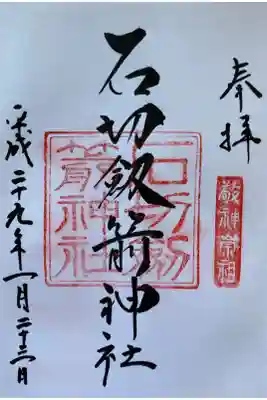 奉拝
敬神崇祖
石切劔箭神社
石切劔
箭神社
平成二十九年一月二十三日